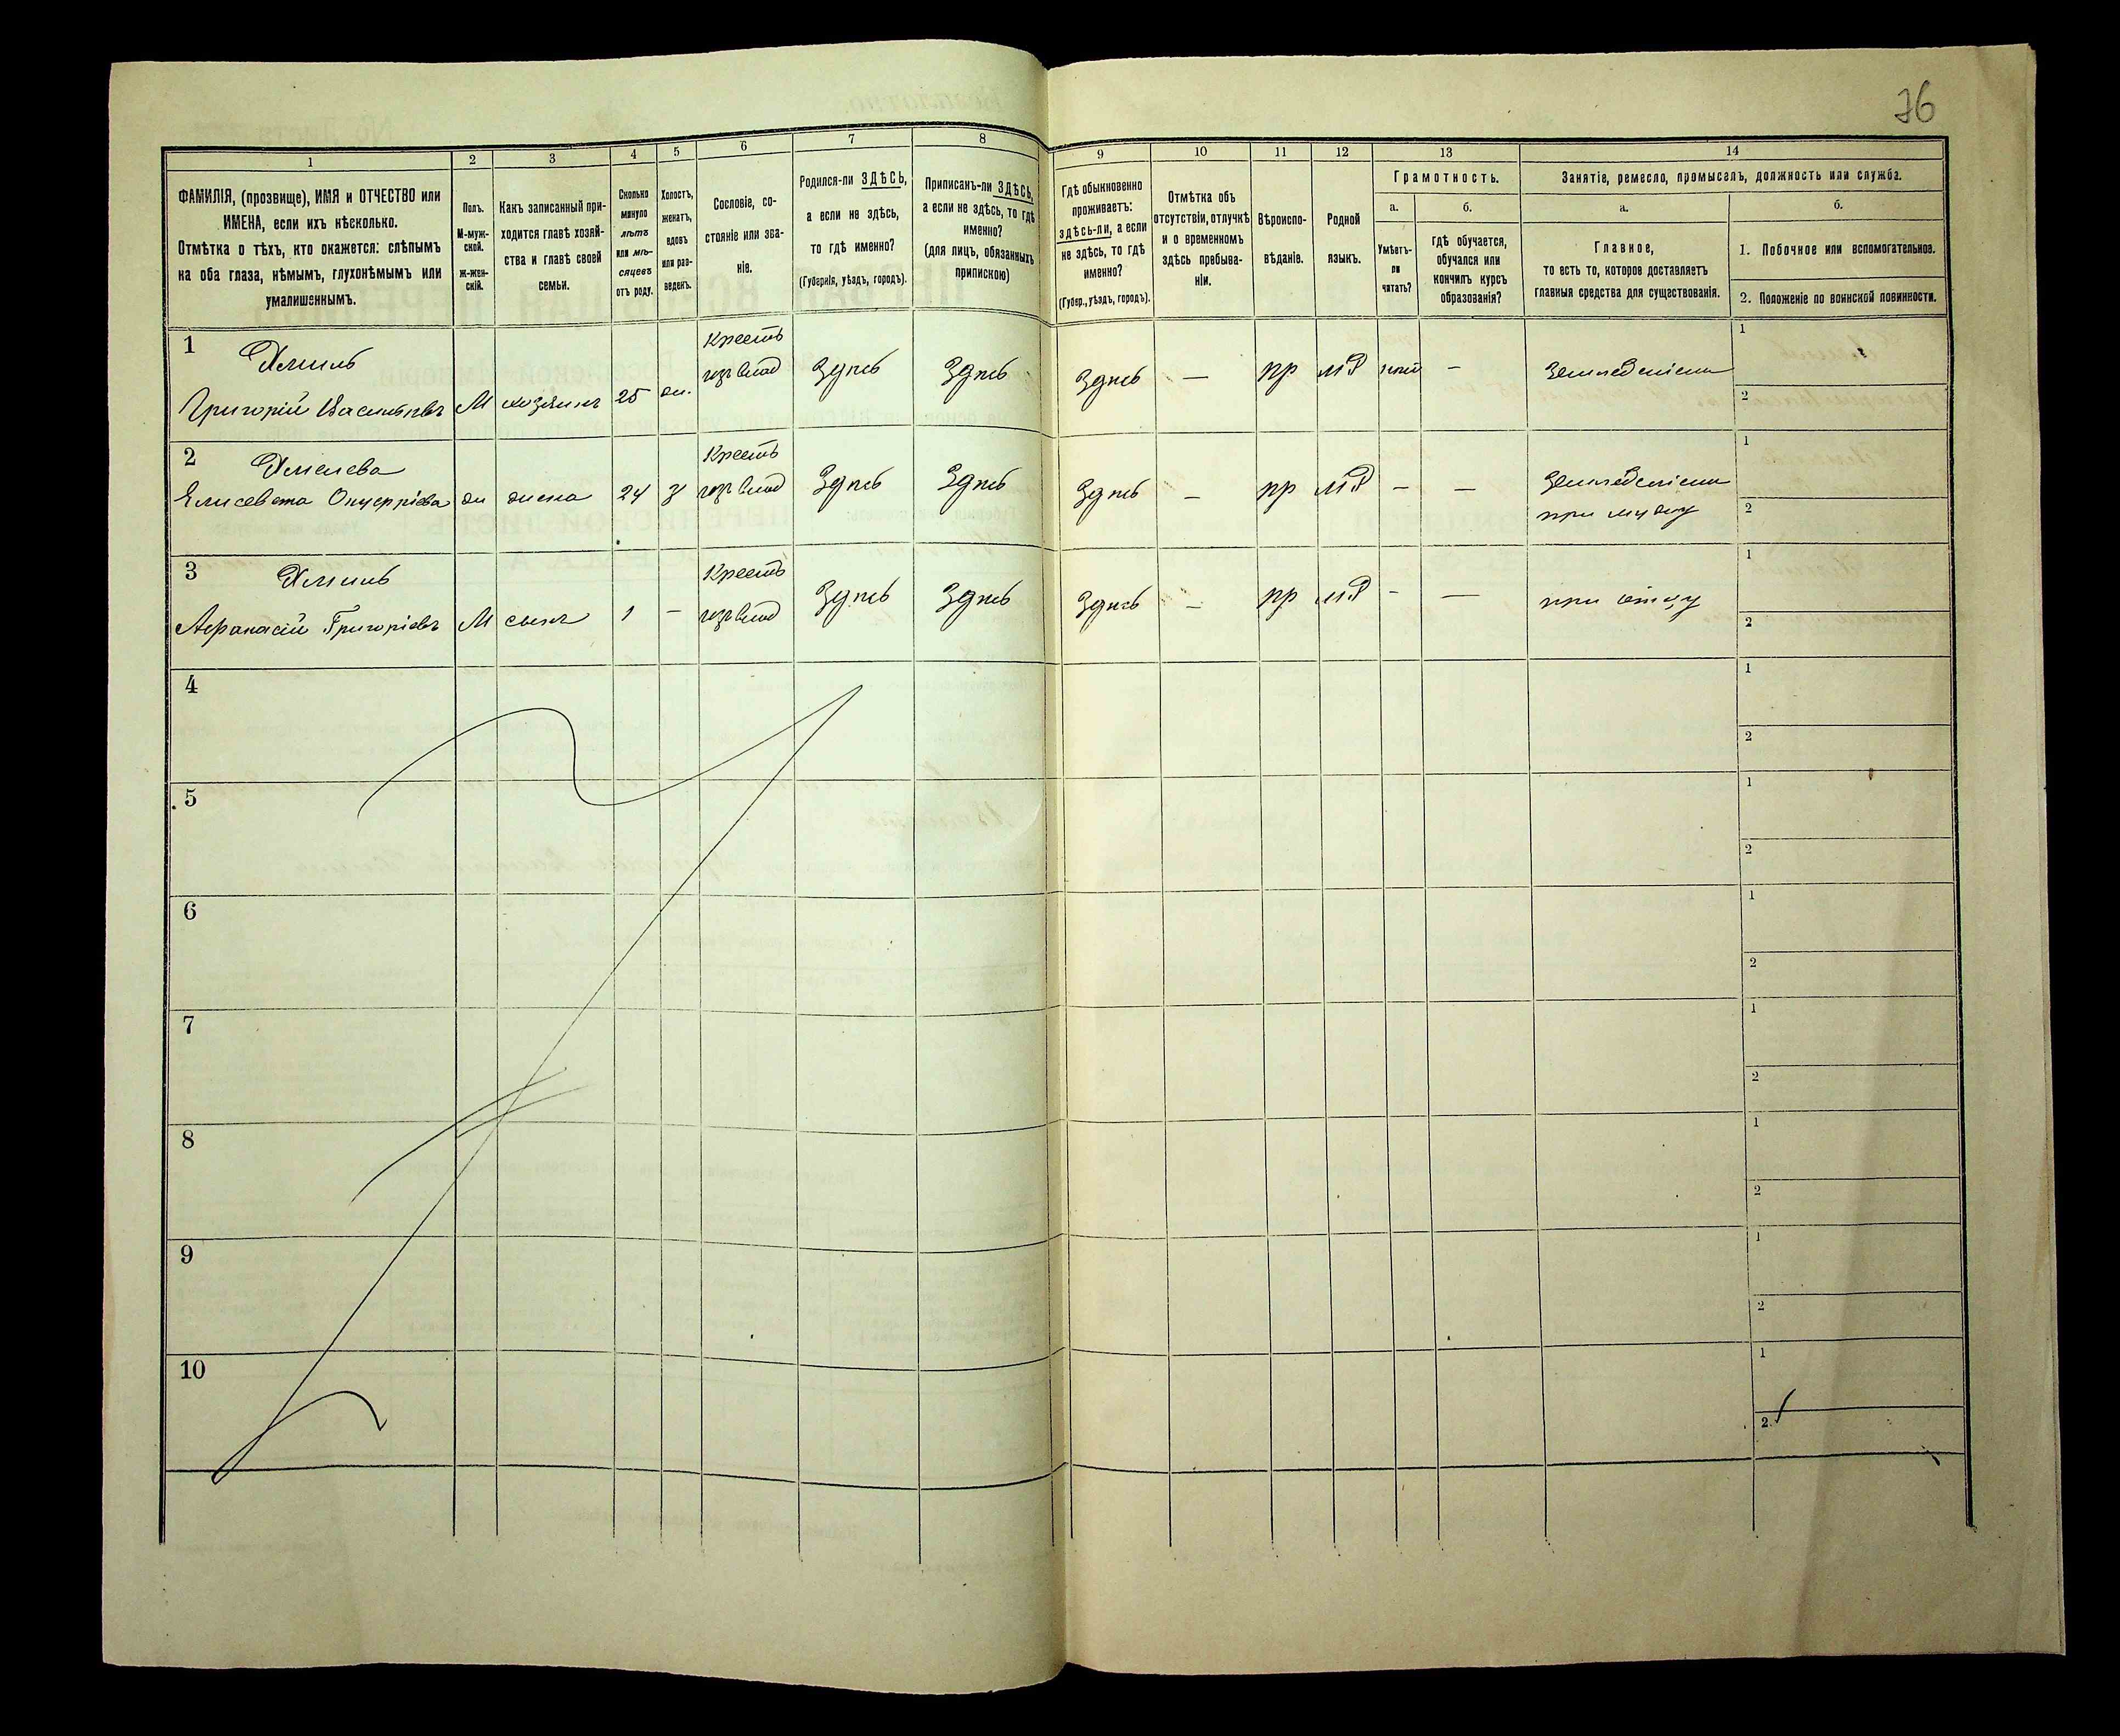 76
1
2
3
4
5
6
7
8
9
10
11
12
13
14
ФАМИЛІЯ, (прозвище), ИМЯ и ОТЧЕСТВО или
ИМЕНА, если ихъ нѣсколько.
Отмѣтка о тѣхъ, кто окажется: слѣпымъ
на оба глаза, нѣмымъ, глухонѣмымъ или
умалишеннымъ.
Полъ.
М-муж-
ской.
Ж-жен-
скій.
Какъ записанный при-
ходится главѣ хозяй-
ства и главѣ своей
семьи.
Сколько
минуло
лѣтъ
или мѣ-
сяцевъ
отъ роду.
Холостъ,
женатъ,
вдовъ
или раз-
веденъ.
Сословіе, со-
стояніе или зва-
ніе.
Родился-ли ЗДѢСЬ,
а если не здѣсь,
то гдѣ именно?
(Губернія, уѣздъ, городъ).
Приписанъ-ли ЗДѢСЬ,
а если не здѣсь, то гдѣ
именно?
(для лицъ, обязанныхъ
припискою)
Гдѣ обыкновенно
проживаетъ:
здѣсь-ли, а если
не здѣсь, то гдѣ
именно?
(Губер., уѣздъ, городъ).
Отмѣтка объ
отсутствіи, отлучкѣ
и о временномъ
здѣсь пребыва-
ніи.
Вѣроиспо-
вѣданіе.
Родной
языкъ.
Грамотность.
а.
Умѣетъ-
ли
читать?
б.
гдѣ обучается,
обучался или
кончилъ курсъ
образованія?
Занятіе, ремесло, промыселъ, должность или служба.
а.
Главное,
то есть то, которое доставляетъ
главныя средства для существованія.
б.
1. Побочное или вспомогательное.
2. Положеніе по воинской повинности.
1
Григорій
М хозяинъ 25 ж.
Кресть
Здѣсь Здѣсь Здѣсь — пр — Земледѣліе
1
2
2
Елисевета
ж жена 24 З
Кресть
Здѣсь Здѣсь Здѣсь — пр — — Земледѣліе
при мужу
1
2
3
Афанасій Григоріевъ
М сынъ 1 —
Кресть
Здѣсь Здѣсь Здѣсь — пр — — при отцу
1
2
4
1
2
5
1
2
6
1
2
7
1
2
8
1
2
9
1
2
10
1
2